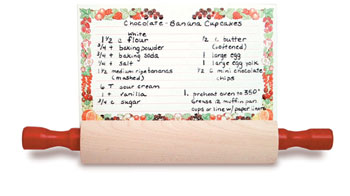 Chocolate-Banana Cupcakes
white
1 1/2 c flour
3/4 t baking powder
3/4 t baking soda
1/4 t salt
1 1/2 medium ripe bananas
(mashed)
6 T sour cream
1 t vanilla
3/4 c sugar
1/2 c butter
(softened)
1 large egg
1 large egg yolk
1/2 c mini chocolate
chips
1. preheat oven to 350°
Grease 12 muffin pan
cups or line w/ paper liners